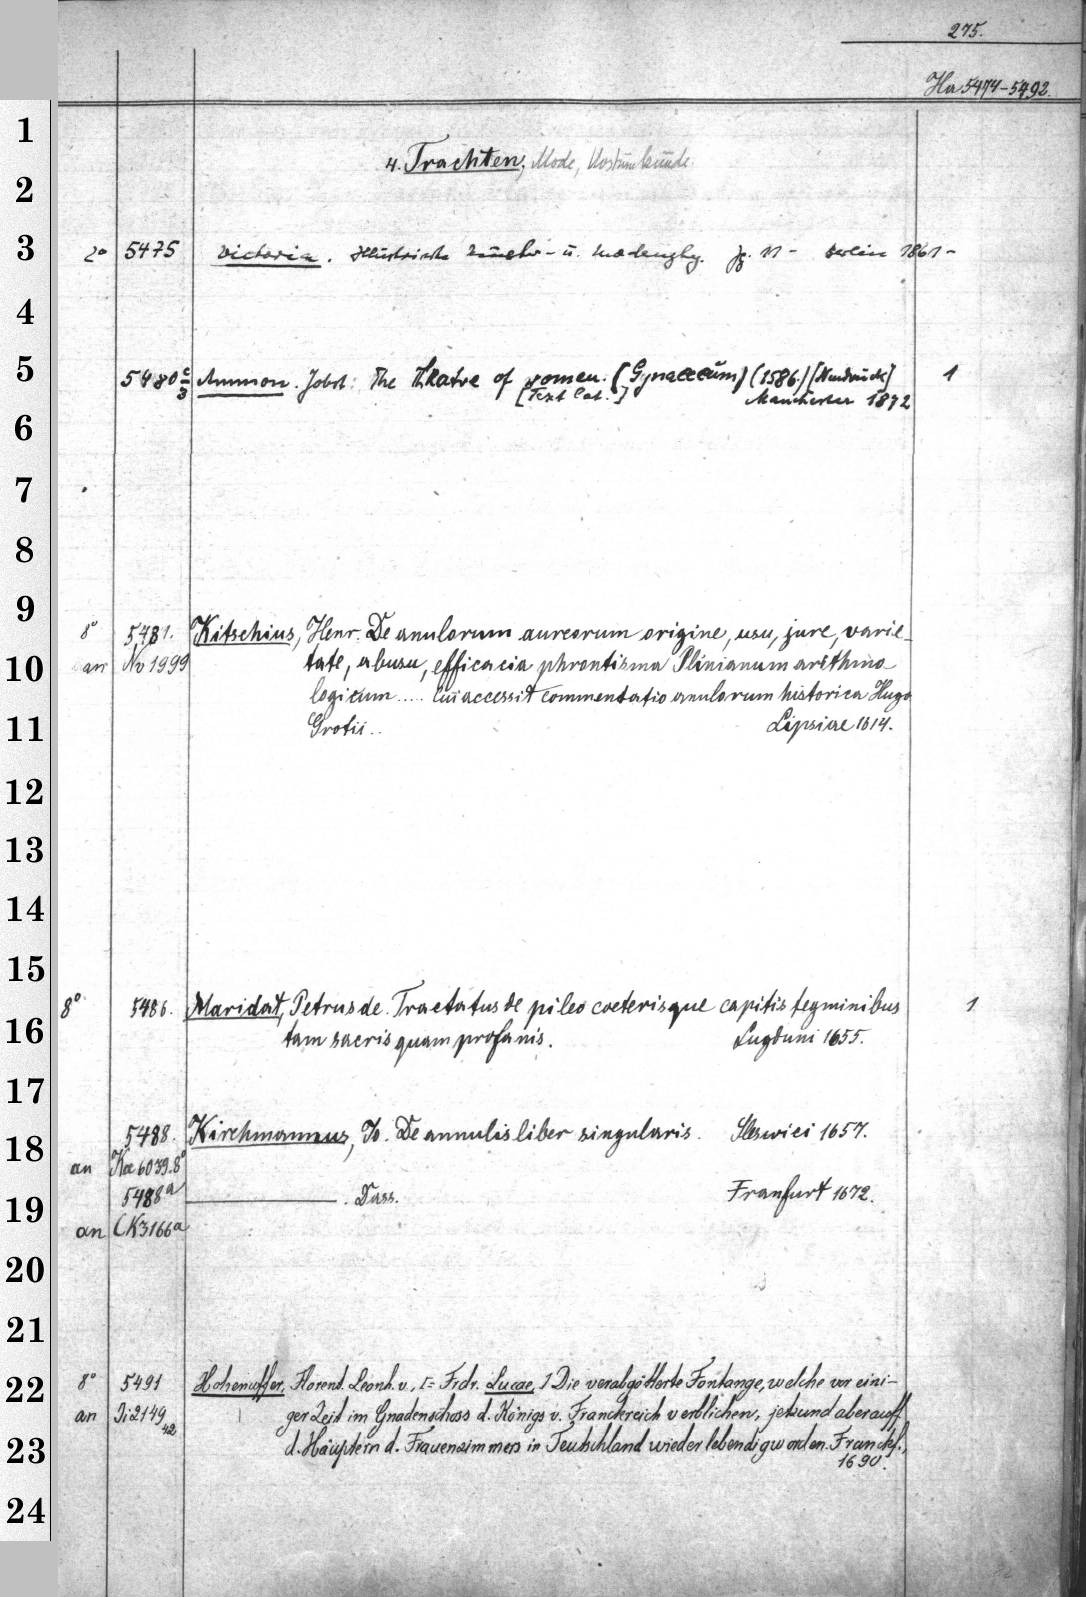 275.
Ha 5474-5492.
1
4. Trachten, Mode, Kostümkunde
2
3 2° 5475 Victoria. Illustrirte u. Modenztg. Jg. 11 - Berlin 1861-
4
5 5480 Ammon. Jobst: The Theatre of women. (Gynaeceum) (1586.) [Neudruck] 1
[Text lat.] Manchester 1872
6
7
8
9 8° 5481. Kitschius, Henr. De anulorum aureorum origine, usu, jure, varie-
10 an No 1999 tate, abusu, efficacia phrontisma Plinianum arithmo
logicum ..... Cui accessit commentatio anulorum historica Hugo
11 Grotii.. Lipsiae 1614.
12
13
14
15
8° 5486. Maridat, Petrus de. Tractatus de pileo caeterisque capitis tegminibus 1
16 tam sacris quam profanis. Lugduni 1655.
17
18 5488. Kirchmannus, Jo. De annulis liber singularis. Sleswici 1657.
an Kae 6039.8°
19 5488a ———. Dass. Franfurt 1672.
an CK3166a
20
21
22 8° 5491 Hohenuffer, Florent. Leonh. v., [= Frdr. Lucae,] Die verabgötterte Fontange, welche vor eini-
an Ji2149 42 ger Zeit im Gnadenschoss d. Königs v. Franckreich verblichen, jetzund aber auff
23 d. Häuptern d. Frauenzimmers in Teutschland wieder lebendig worden. Franckf.,
1690.
24